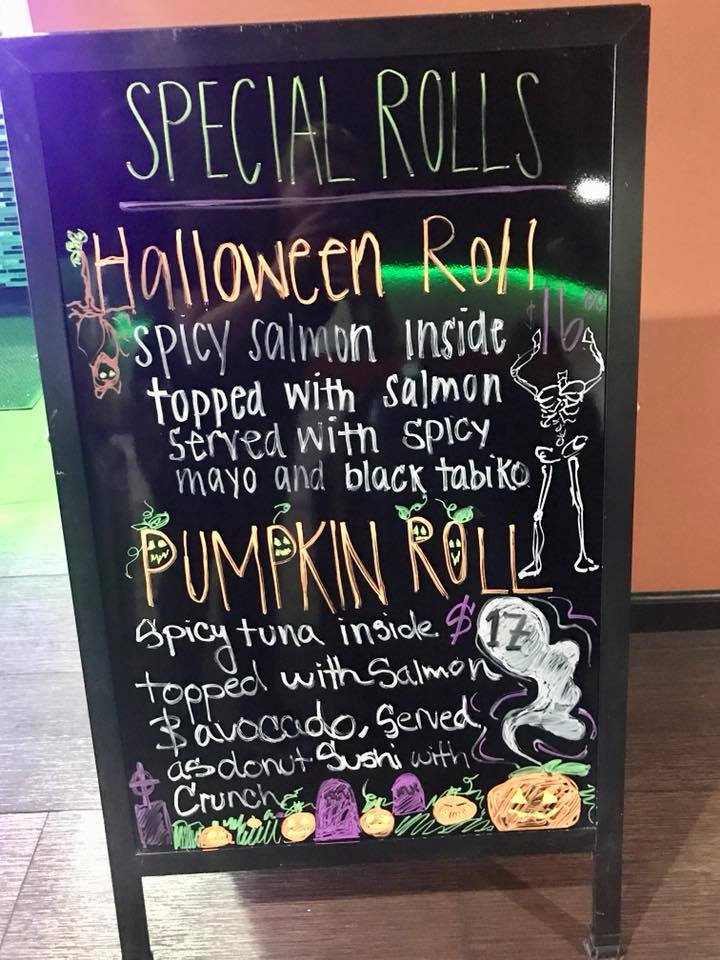 SPECIAL ROLLS
Halloween Roll
spicy salmon inside $16.00
topped with salmon
served with spicy
mayo and black tabiko
PUMPKIN ROLL
Spicy tuna inside $17
topped with Salmon
& avocado, Served
as donut Sushi with
Crunch